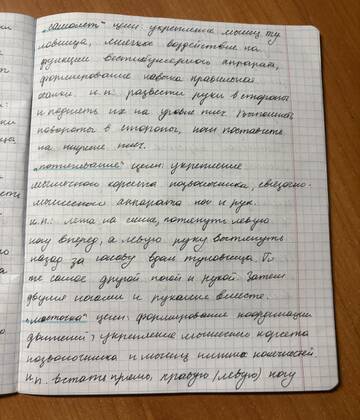 "самолёт" цели: укрепление мышц ту
ловища, мягкое воздействие на
функции вестибулярного аппарата,
формирование навыка правильной
осанки. и.п: развести руки в стороны
и поднять их на уровне плеч. Выполнить
повороты в стороны, ноги поставить
на ширине плеч.
"потягивание" цели: укрепление
мышечного корсета позвоночника, связочно-
мышечного аппарата ног и рук.
и.п.: лежа на спине, потянуть левую
ногу вперед, а левую руку вытянуть
назад за голову вдоль туловища. То
же самое другой ногой и рукой. Затем
двумя ногами и руками вместе.
"ласточка" цели: формирование координации
движений, укрепление мышечного корсета
позвоночника и мышц нижних конечностей.
и.п. встать прямо, правую (левую) ногу